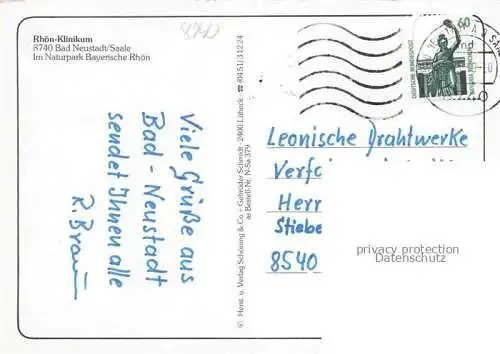 Rhön-Klinikum
8740 Bad Neustadt/Saale
Im Naturpark Bayerische Rhön
Viele Grüße aus
Bad-Neustadt
sendet Ihnen alle
R. Braun
© Herst. u. Verlag Schöning & Co. + Gebrüder Schmidt · 2400 Lübeck · ☎ (04 51) 3 12 24
Bestell-Nr. N-Sa 379
60
DEUTSCHE BUNDESPOST
Leonische Drahtwerke
Verfc
Herr
Stiebe
8540
privacy protection
Datenschutz